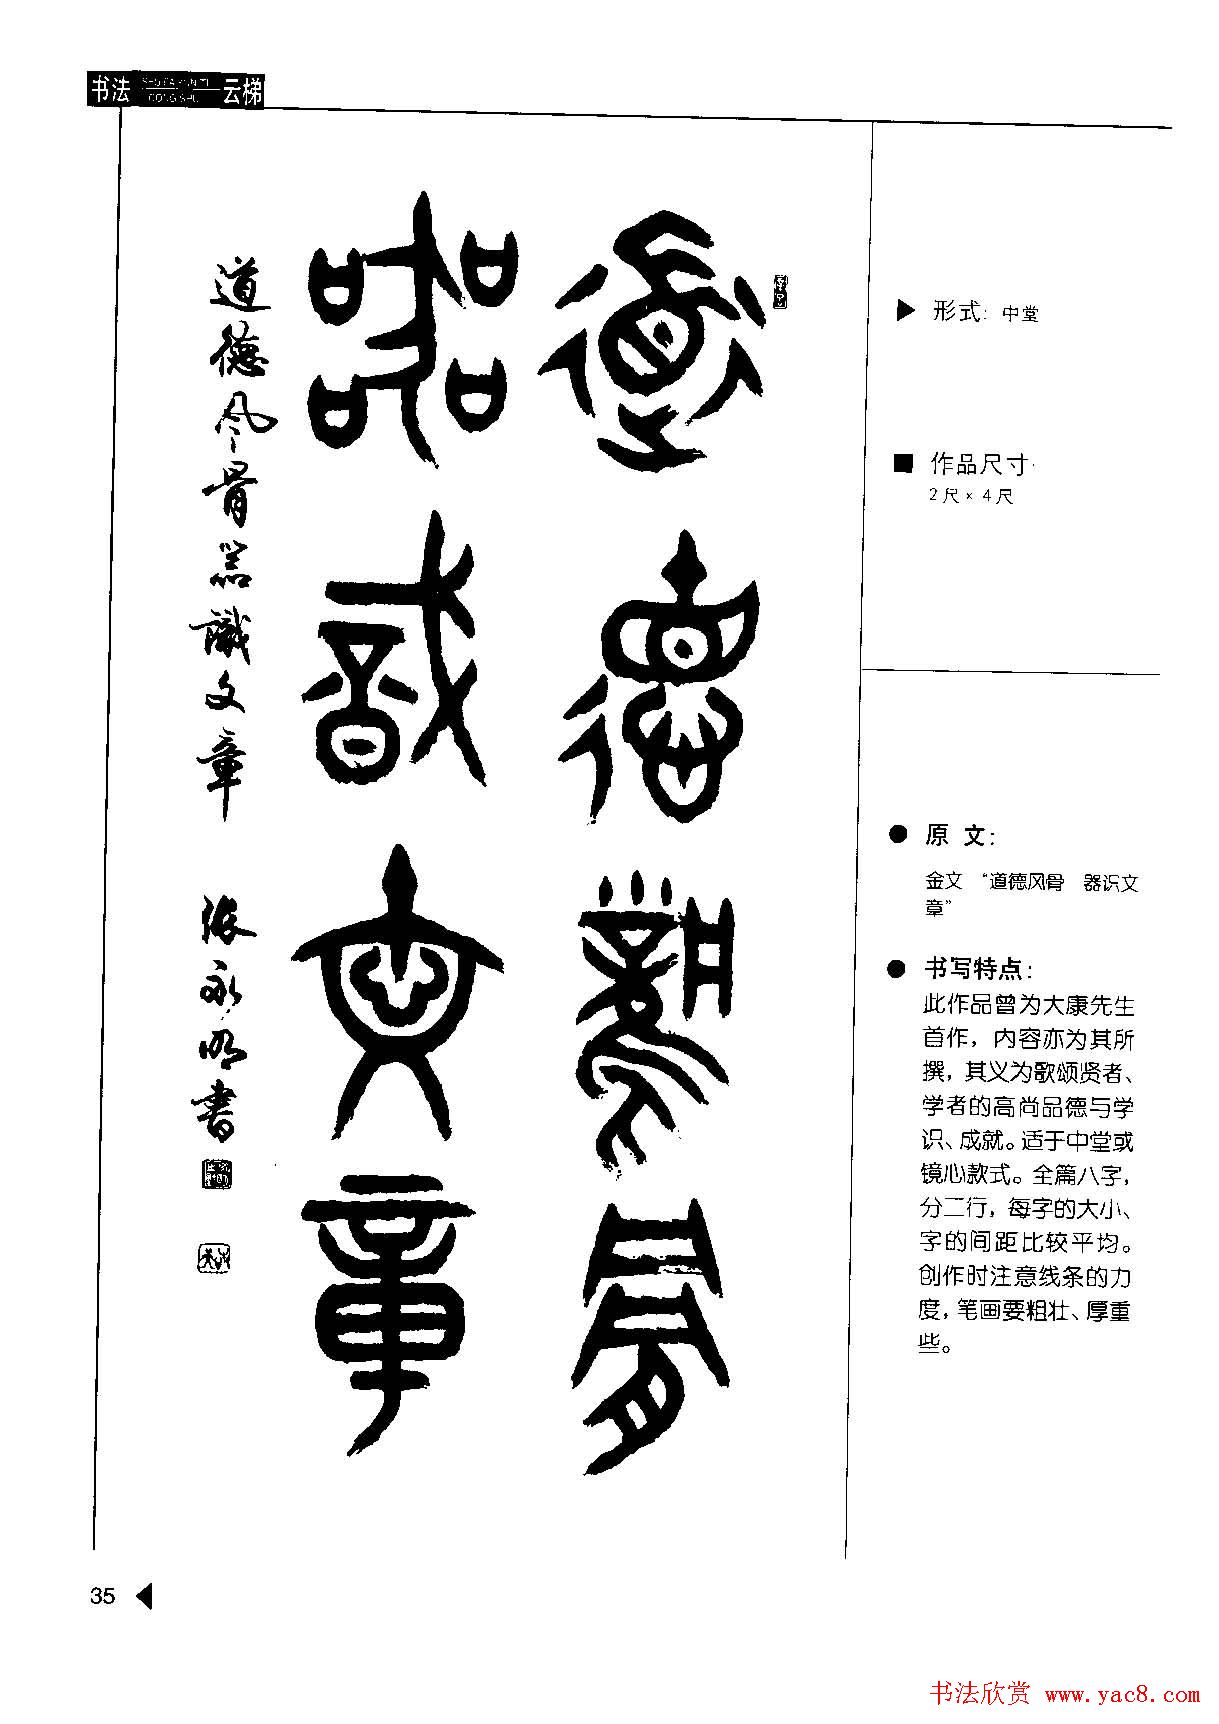 书法 云梯
道德风骨
器识文章
道德风骨器識文章 張永明書
形式：中堂
作品尺寸：
2尺×4尺
原 文：
金文 “道德风骨 器识文
章”
书写特点：
此作品曾为大康先生
首作，内容亦为其所
撰，其义为歌颂贤者、
学者的高尚品德与学
识、成就。适于中堂或
镜心款式。全篇八字，
分二行，每字的大小、
字的间距比较平均。
创作时注意线条的力
度，笔画要粗壮、厚重
些。
35
书法欣赏 www.yac8.com